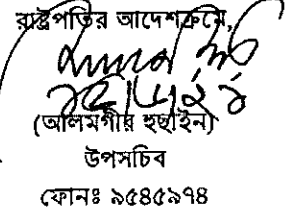 রাষ্ট্রপতির আদেশক্রমে,
(আলমগীর হুছাইন)
উপসচিব
ফোনঃ ৯৫৪৫৯৭৪